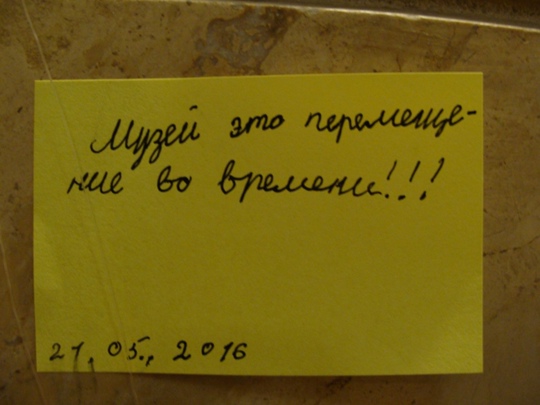 Музей это перемеще-
ние во времени!!!
21.05., 2016